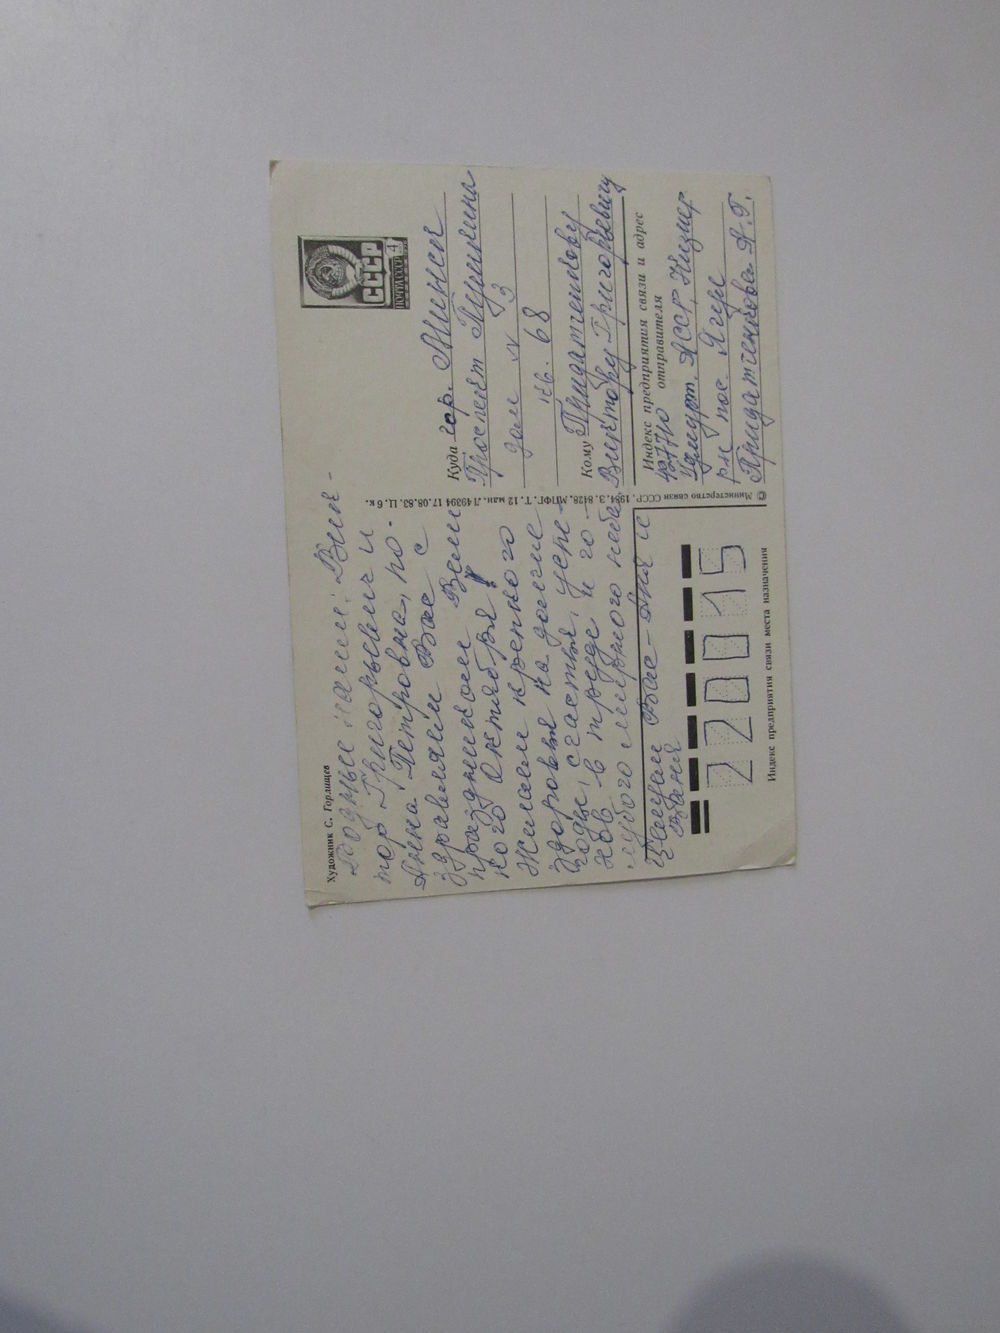 Художник С. Горлищев
Родные наши: Вик-
тор Григорьевич и
Анна Петровна, по-
здравляем Вас с
праздником Вели
кого Октября!
Желаем крепкого
здоровья на долгие
годы, счастья, успе-
хов в труде и го-
лубого мирного неба
Целуем Вас - Аня и
Ваня
ПОЧТА СССР
СССР
4
Куда гор. Минск
Проспект Пушкина
дом N 3
кв. 68
Кому Придатченкову
Виктору Григорьевичу
Индекс предприятия связи и адрес
отправителя
427710
Удмурт. АССР, Кизнер
р-н пос. Ягул
Придатченкова А.Г.
© Министерство связи СССР. 1984. З. 8428. МПФГ. Т. 12 млн. Л49394 17.08.83. Ц. 6 к.
220015
Индекс предприятия связи места назначения